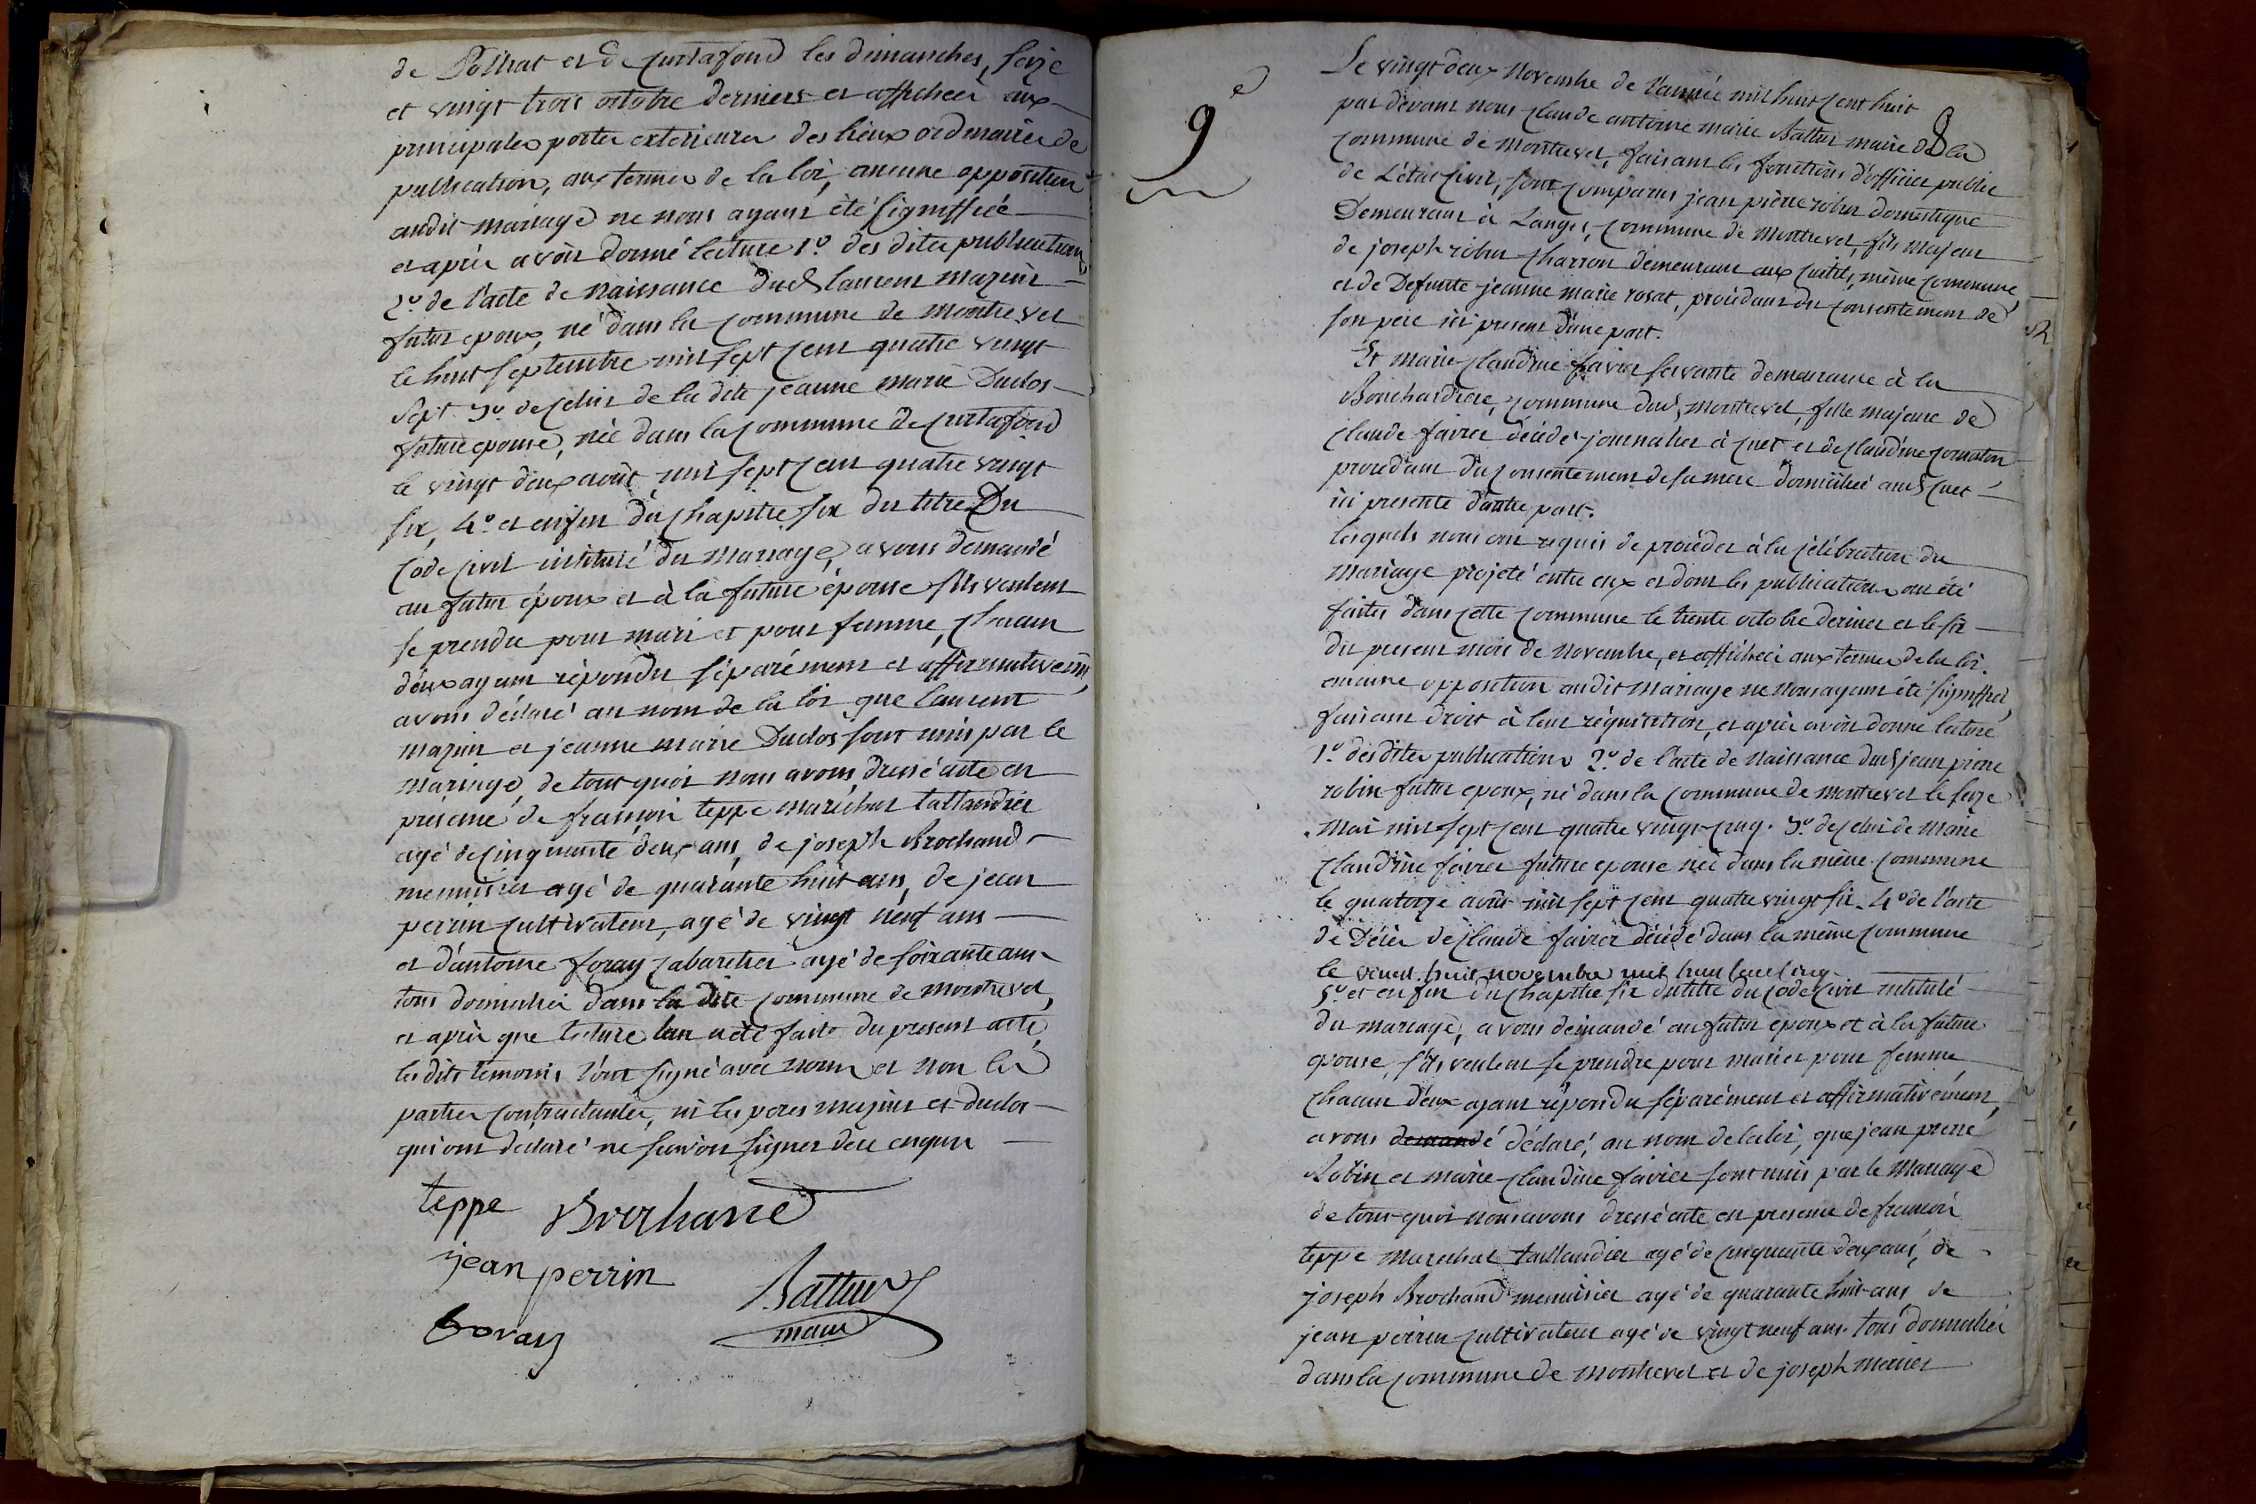 de Polliat et de Curtafond les dimanches, seize
et vingt trois octobre derniers et affichées aux
principales portes exterieures des lieux ordinaires de
publication, aux termes de la loi, aucune opposition
audit mariage ne nous ayant été signiffiée
et après avoir donné lecture 1º. des dites publications,
2º. de l'acte de naissance dud. laurent mazuir
futur epoux, né dans la commune de montrevel
le huit septembre mil sept cent quatre vingt
sept. 3º. de celui de la dite jeanne marie Duclos
future epouse, née dans la commune de Curtafond
le vingt deux août mil sept cent quatre vingt
six, 4º. et enfin du chapitre six du titre Du
Code civil intitulé du Mariage, avons demandé
au futur époux et à la future épouse s'ils veulent
se prendre pour mari et pour femme, chacun
d'eux ayant répondu séparément et affirmativement,
avons déclaré au nom de la loi que laurent
mazuir et jeanne marie Duclos sont unis par le
mariage, de tout quoi nous avons dressé acte en
présence de françois teppe maréchal taillandier
agé de cinquante deux ans, de joseph Brochand
menuisier agé de quarante huit ans, de jean
perrin cultivateur, agé de vingt neuf ans
et d'antoine foray cabaretier agé de soixante ans
tous domiciliés dans la dite commune de montrevel,
et après que lecture leur a été faite du present acte,
les dits temoins l'ont signé avec nous et non les
parties contractantes, ni les peres mazuir et duclos
qui ont declaré ne savoir signer de ce enquis
teppe Brochand
jean perrin
Battur
foray
maire
9e
Le vingt deux Novembre de l'année mil huit cent huit
par devant nous claude antoine marie Battur maire de la
commune de montrevel, faisant les fonctions d'officier public
de L'état civil, sont comparus jean pierre robin domestique
Demeurant à Langes, commune de montrevel, fils majeur
de joseph robin charron demeurant aux Curtils, même commune,
et de Defunte jeanne marie rosat, procédant du consentement de
son pere ici present d'une part.
Et marie claudine favier servante demeurante à la
Bouchardiere, commune dud. montrevel, fille majeure de
claude favier décédé journalier à Cuet et de claudine cornaton
procedant du consentement de sa mere domiciliée aud. Cuet
ici presente d'autre part.
lesquels nous ont requis de procéder à la célébration du
mariage projeté entre eux et dont les publications ont été
faites dans cette commune le trente octobre dernier et le six
du present mois de Novembre, et affichées aux termes de la loi.
aucune opposition audit mariage ne nous ayant été signiffiée,
faisant droit à leur réquisition, et après avoir donné lecture
1º. des dites publications 2º. de l'acte de naissance dud. jean pierre
robin futur epoux, né dans la commune de montrevel le seize
mai mil sept cent quatre vingt cinq. 3º. de celui de Marie
claudine favier future epouse née dans la même commune
le quatorze août mil sept cent quatre vingt six. 4º de l'acte
de Décès de claude favier décédé dans la même commune
le vingt huit novembre mil huit cent cinq
5º. et enfin du chapitre six du titre du code civil intitulé
du mariage, avons demandé au futur epoux et à la future
epouse, s'ils veulent se prendre pour mari et pour femme,
chacun d'eux ayant répondu séparément et affirmativement,
avons demandé déclaré, au nom de la loi, que jean pierre
Robin et marie claudine favier sont unis par le Mariage
de tout quoi nous avons dressé acte en presence de françois
teppe marechal taillandier agé de cinquante deux ans, de
joseph Brochand menuisier agé de quarante huit ans de
jean perrin cultivateur agé de vingt neuf ans. tous domiciliés
dans la commune de montrevel et de joseph mercier